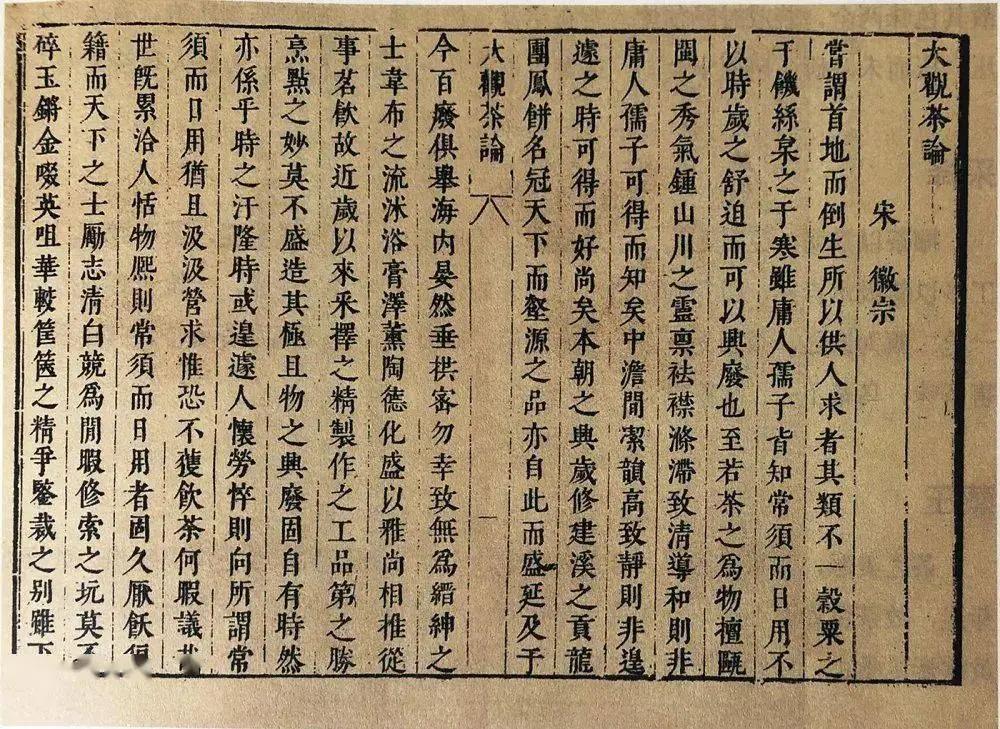 大觀茶論
宋徽宗
嘗謂首地而倒生所以供人求者其類不一穀粟之
于饑絲枲之于寒雖庸人孺子皆知常須而日用不
以時歲之舒迫而可以興廢也至若茶之為物擅甌
閩之秀氣鍾山川之靈禀袪襟滌滯致清導和則非
庸人孺子可得而知矣中澹閒潔韻高致靜則非遑
遽之時可得而好尚矣本朝之興歲修建溪之貢龍
團鳳餅名冠天下而壑源之品亦自此而盛延及于
大觀茶論 一
今百廢俱舉海內晏然垂拱密勿幸致無為縉紳之
士韋布之流沐浴膏澤薰陶德化盛以雅尚相推從
事茗飲故近歲以來采擇之精製作之工品第之勝
烹點之妙莫不盛造其極且物之興廢固自有時然
亦係乎時之汙隆時或遑遽人懷勞悴則向所謂常
須而日用猶且汲汲營求惟恐不獲飲茶何暇議哉
世既累洽人恬物熙則常須而日用者固久厭飫狼
籍而天下之士厲志清白競為閒暇修索之玩莫不
碎玉鏘金啜英咀華較筐篋之精爭鑒裁之别雖下